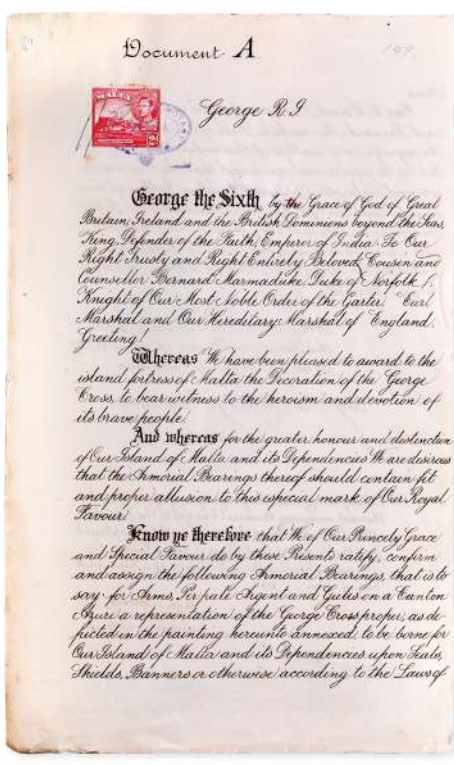 Document A
149.
MALTA
George R I
George the Sixth by the Grace of God of Great
Britain, Ireland and the British Dominions beyond the Seas,
King, Defender of the Faith, Emperor of India To Our
Right Trusty and Right Entirely Beloved Cousin and
Counsellor Bernard Marmaduke, Duke of Norfolk,
Knight of Our Most Noble Order of the Garter. Earl
Marshal and Our Hereditary Marshal of England.
Greeting!
Whereas We have been pleased to award to the
island fortress of Malta the Decoration of the George
Cross, to bear witness to the heroism and devotion of
its brave people.
And whereas for the greater honour and distinction
of Our Island of Malta and its Dependencies We are desirous
that the Armorial Bearings thereof should contain fit
and proper allusion to this especial mark of Our Royal
Favour
Know ye therefore that We of Our Princely Grace
and Special Favour do by these Presents ratify, confirm
and assign the following Armorial Bearings, that is to
say for Arms, Per pale Argent and Gules on a Canton
Azure a representation of the George Cross proper, as de-
picted in the painting hereunto annexed, to be borne for
Our Island of Malta and its Dependencies upon Seals,
Shields, Banners or otherwise according to the Laws of